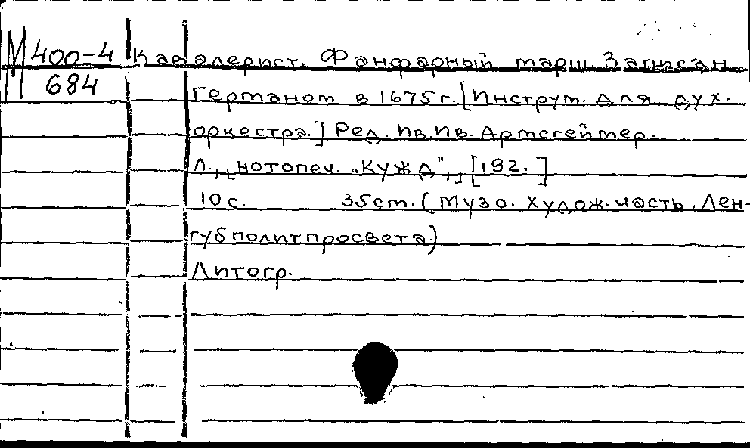 М 400-4 Кавалерист. Фанфарный марш. Записан
684 Германом в 1675 г. [Инструм. для дух.
оркестра.] Ред. Ив. Ив. Армсгеймер.
Л., [нотопеч. "КУЖД",] [192. ]
10 с. 35 cm. (Музо. Худож. часть. Лен-
губполитпросвета)
Литогр.